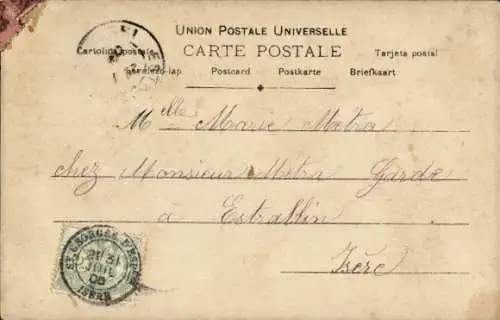 UNION POSTALE UNIVERSELLE
CARTE POSTALE
Cartolina postale Tarjeta postal
Postcard Postkarte Briefkaart
Melle Marie Metra
chez Monsieur Metra Garde
à Estrablin
Isère
ST GEORGES D'ESP
JUIL
05
ISERE